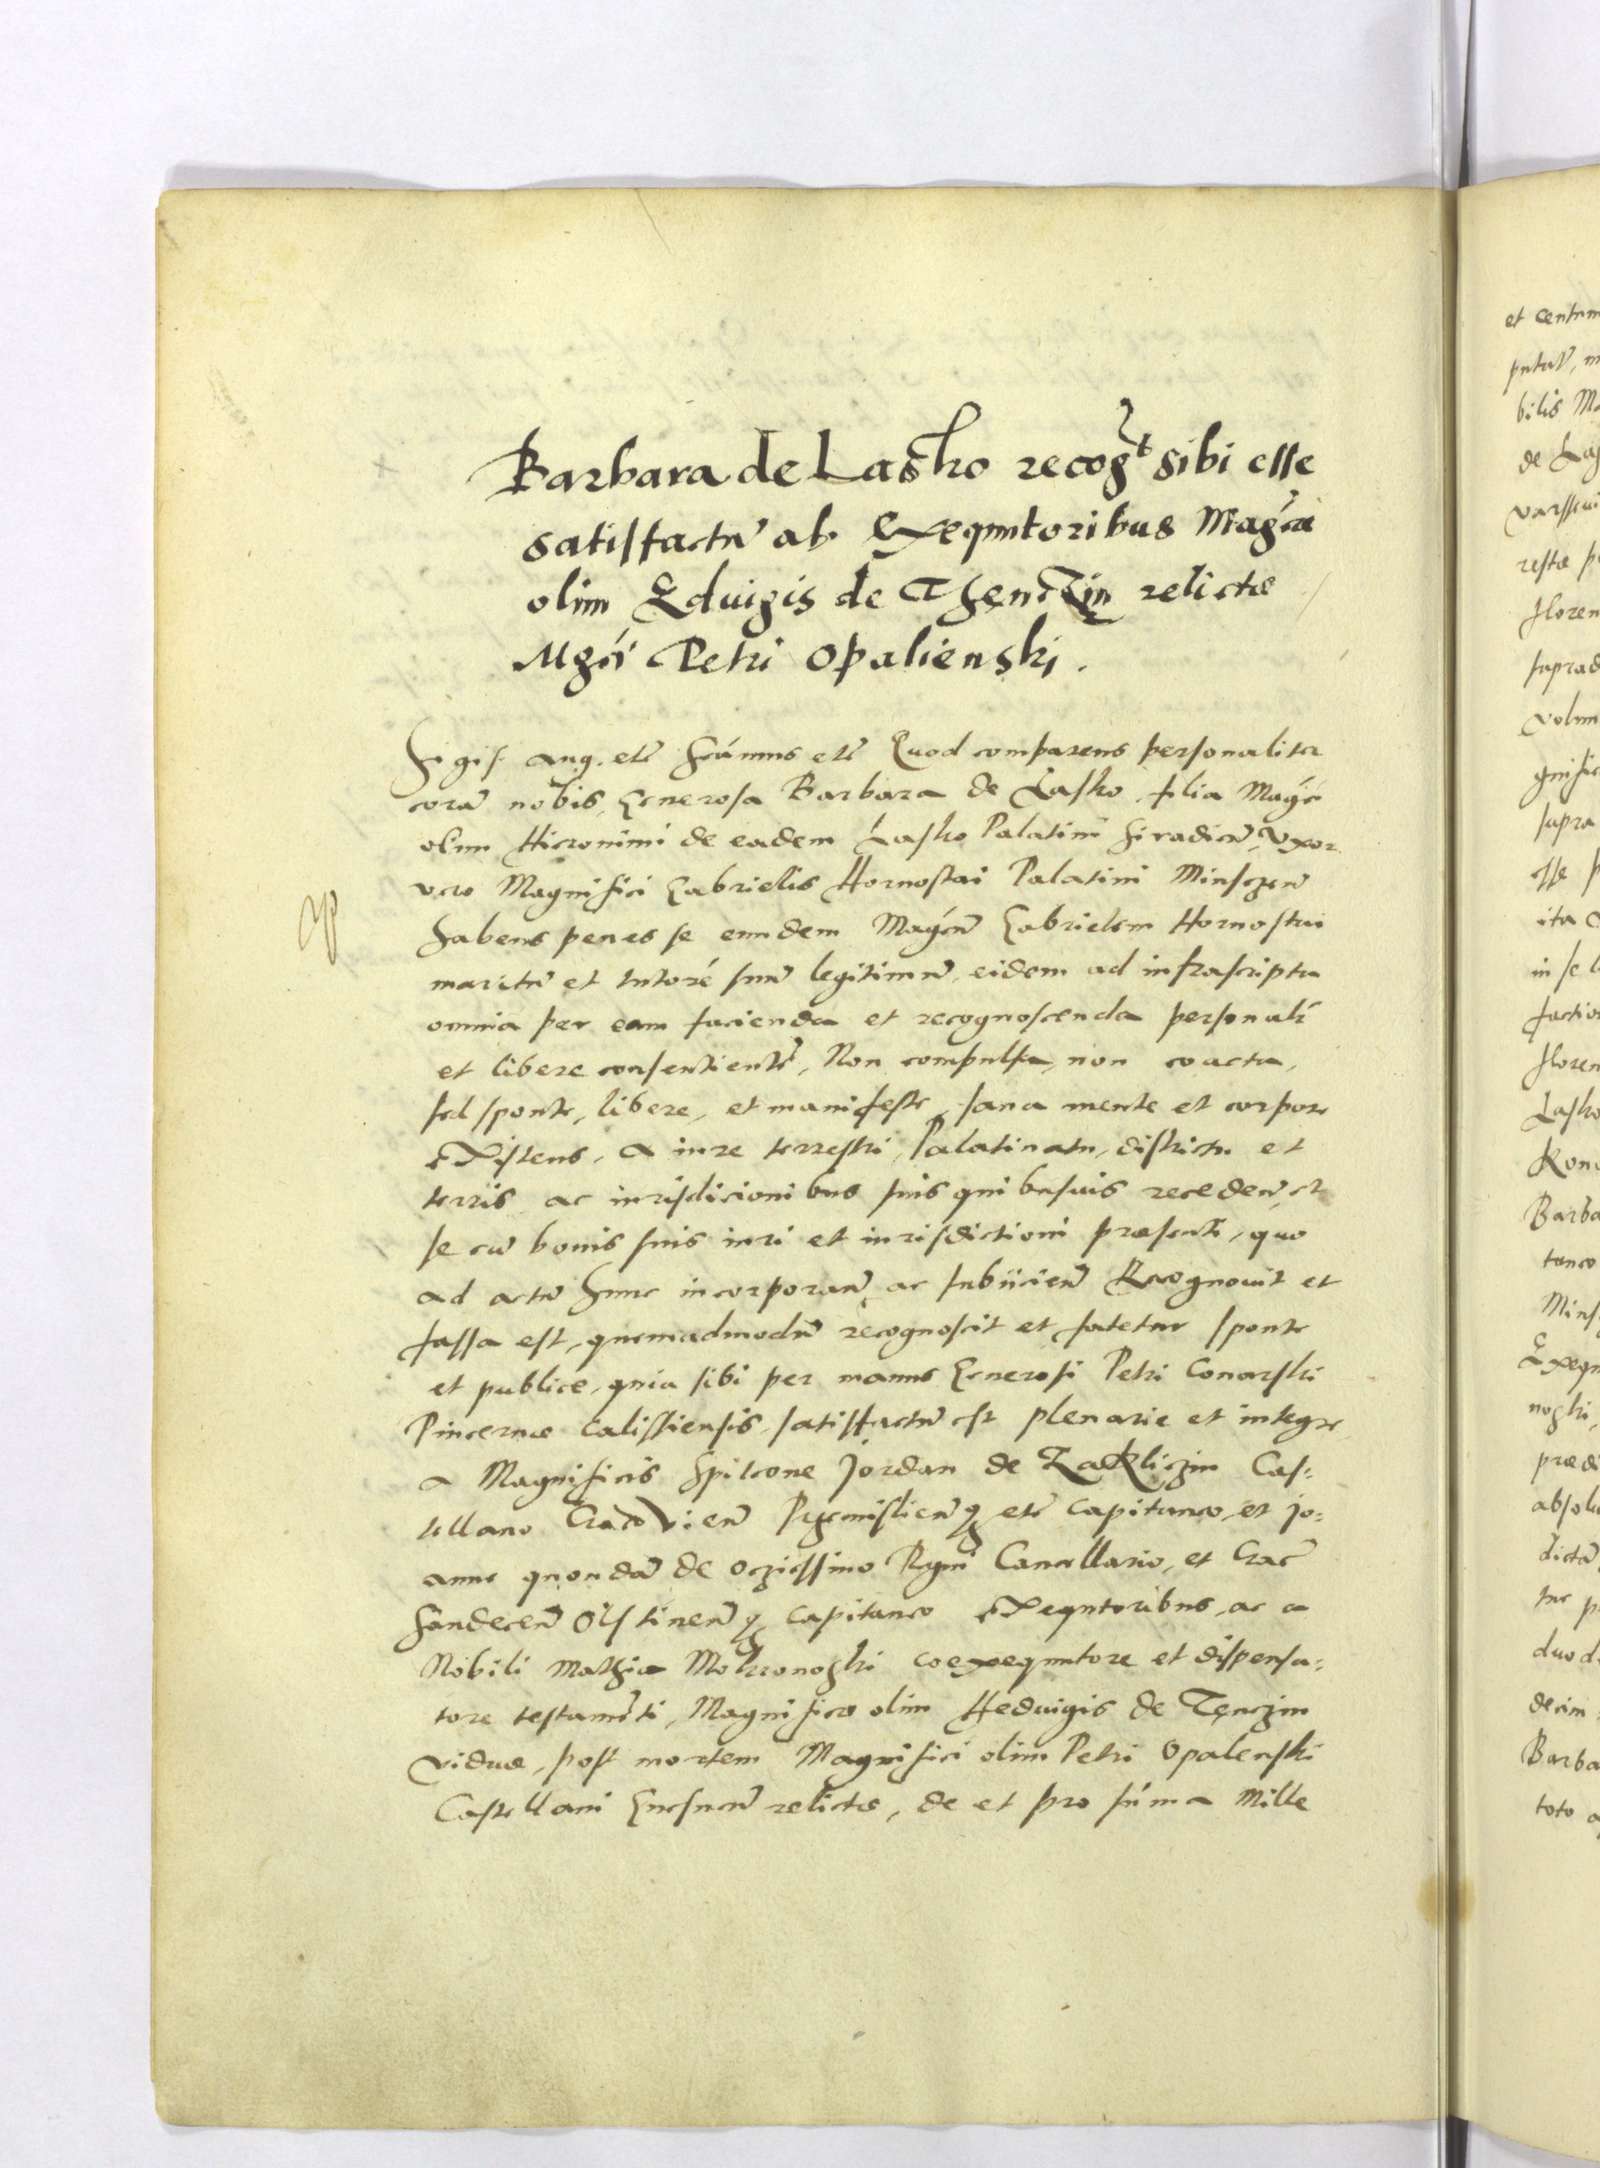 Barbara de Lasko recog͂t sibi esse
satisfactu͂ ab exequutoribus Mag͂cæ
olim Eduigis de Thęnczin relictæ
Mg͂ci Petri Opalienski.
Sigis. aug. etc͂ S͂camus etc͂ Quod comparens personaliter
cora͂ nobis, Generosa Barbara de Lasko, filia Mag͂ci
olim Hieronimi de eadem Lasko Palatini Siradien͂, Vxor
vero Magnifici Gabrielis Hornostai Palatini Minsczen͂
habens penes se eundem Mag͂cu͂ Gabrielem Hornostai
maritu͂ et tutore͂ suu͂ legitimu͂, eidem ad infrascripta
omnia per eam facienda et recognoscenda personalr͂
et libere consentiente͂, Non compulsa, non coacta,
sed sponte, libere, et manifeste, sana mente et corpore
existens, a iure terrestri, Palatinatu, districtu et
terris ac iurisdicionibus suis quibusuis receden͂, et
se cu͂ bonis suis iuri et iurisdictioni præsenti, quo
ad actu͂ hunc incorporan͂ ac subiicien͂ Recognouit et
fassa est, quemadmodu͂ recognoscit et fatetur sponte
et publice, quia sibi per manus Generosi Petri Conarski
Pincernæ Calissiensis, satisfactu͂ est plenarie et integre
a Magnificis Spitcone Jordan de Zakliczin Cas=
tellano Cracovien͂ Przemislien͂q etc͂ Capitaneo, et Jo=
anne quonda͂ de Ocziessino Regni Cancellario, et Crac͂
Sandecen͂ Olstinen͂q Capitaneo exequtoribus, ac a
Nobili Mathia Mokronoski coexequutore et dispensa=
tore testame͂ti, Magnificæ olim Heduigis de Tęnczin
viduæ, post mortem Magnifici olim Petri Opalenski
Castellani Gnesnen͂ relictæ, de et pro su͂ma Mille
et centum
bilis
de Las
restæ
floren
suprad
volum
gnific
supra
esse
ita
in se
factio
floren
Lasko
Barba
taneo
Mins
Exequ
prædi
absolu
duod
decim
Barba
toto